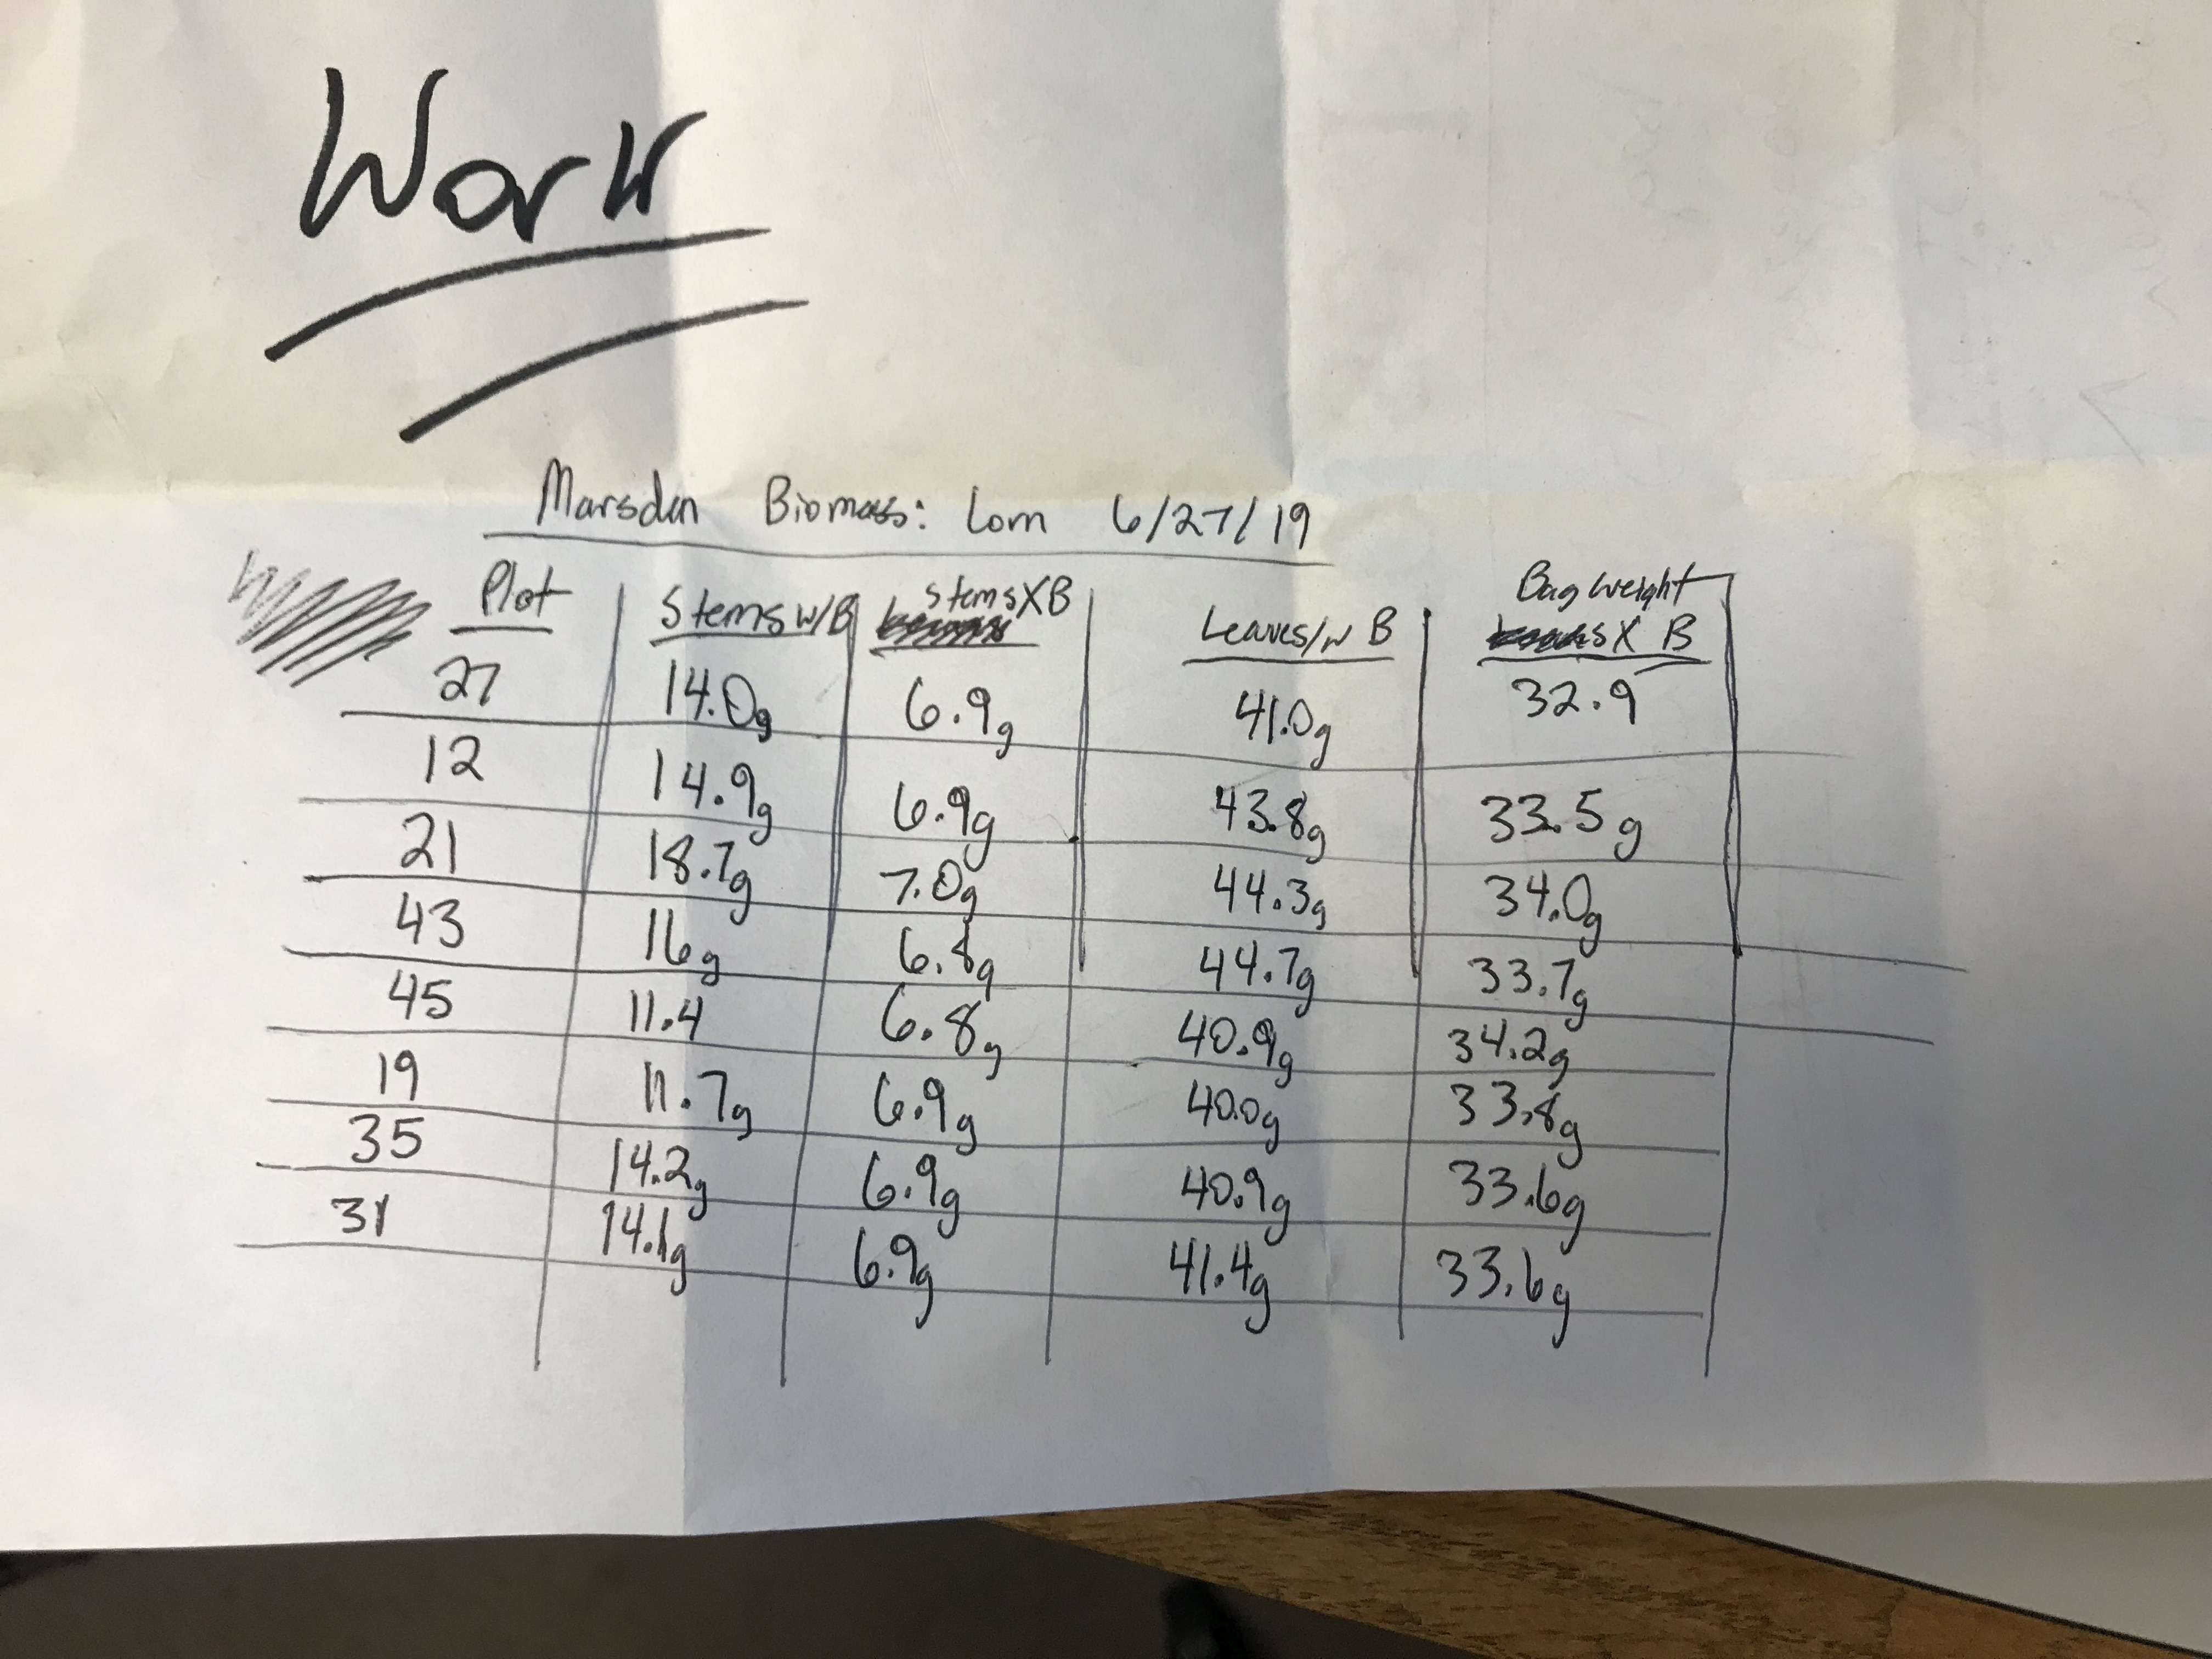 Work
Marsden Biomass: Corn 6/27/19
Plot Stems w/B Stems X B Leaves/w B Bag weight X B
27 14.0g 6.9g 41.0g 32.9
12 14.9g 6.9g 43.8g 33.5g
21 18.7g 7.0g 44.3g 34.0g
43 16g 6.8g 44.7g 33.7g
45 11.4 6.8g 40.9g 34.2g
19 11.7g 6.9g 40.0g 33.8g
35 14.2g 6.9g 40.9g 33.6g
31 14.1g 6.9g 41.4g 33.6g